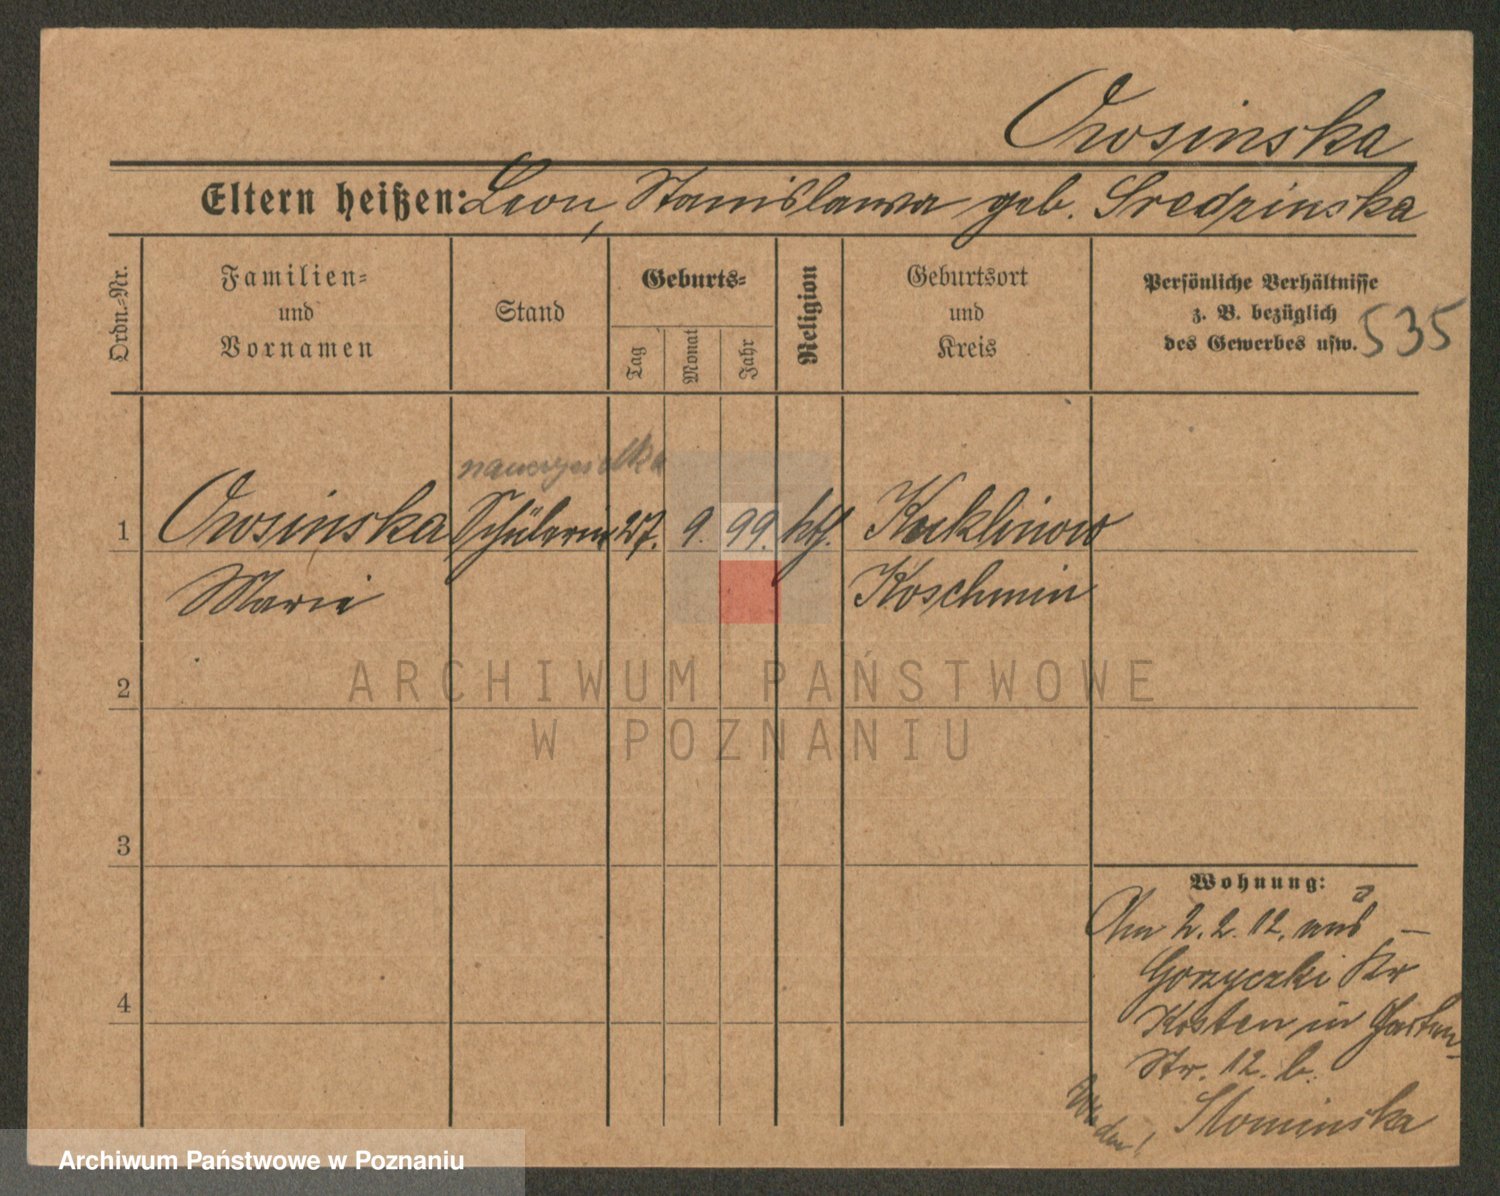 Owsinska
Eltern heißen: Leon, Stanislawa geb. Sredzinska
Ordn.-Nr.
Familien-
und
Vornamen
Stand
Geburts-
Tag
Monat
Jahr
Religion
Geburtsort
und
Kreis
Persönliche Verhältnisse
z. B. bezüglich
des Gewerbes usw.
535
nauczycielka
1 Owsinska Schülerin 27. 9. 99. kth. Kuklinow
Marie Koschmin
2
3
4
Wohnung:
Am 2. 2. 12. aus
Gorzyczki Kr
Kosten in Garten-
Str. 12. b.
Slominska
ARCHIWUM PAŃSTWOWE
W POZNANIU
Archiwum Państwowe w Poznaniu